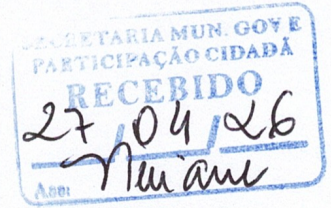 SECRETARIA MUN. GOV E
PARTICIPAÇÃO CIDADÃ
RECEBIDO
27 / 04 / 26
Ass: